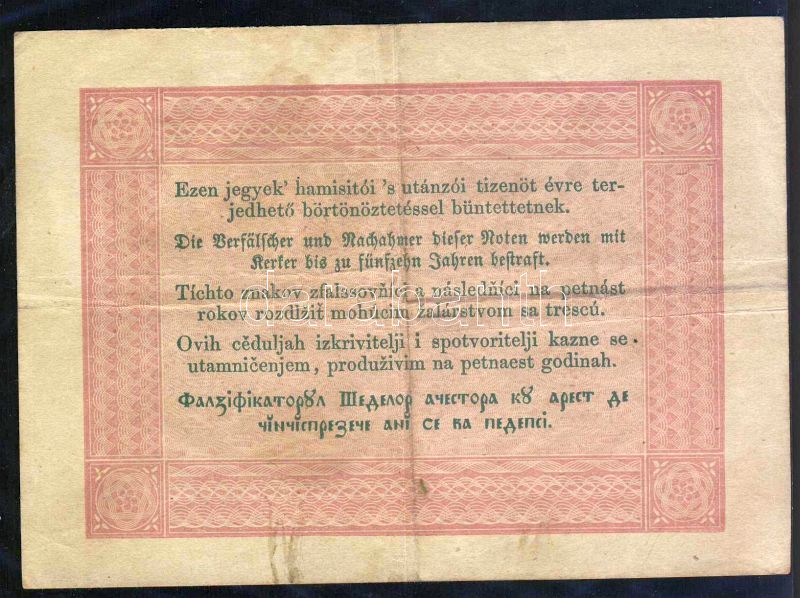 Ezen jegyek' hamisitói 's utánzói tizenöt évre ter-
jedhető börtönöztetéssel büntettetnek.
Die Verfälscher und Nachahmer dieser Noten werden mit
Kerker bis zu fünfzehn Jahren bestraft.
Tíchto znakov zfalšovňíci a následňíci na petnást
rokov rozdlžiť mohúcim žalárstvom sa trescú.
Ovih cěduljah izkrivitelji i spotvoritelji kazne se
utamničenjem, produživim na petnaest godinah.
Фалзіфікаторꙋл Шеделор ачестора кꙋ арест де
чінчіспрезече ані се ва педепсі.
darabanth